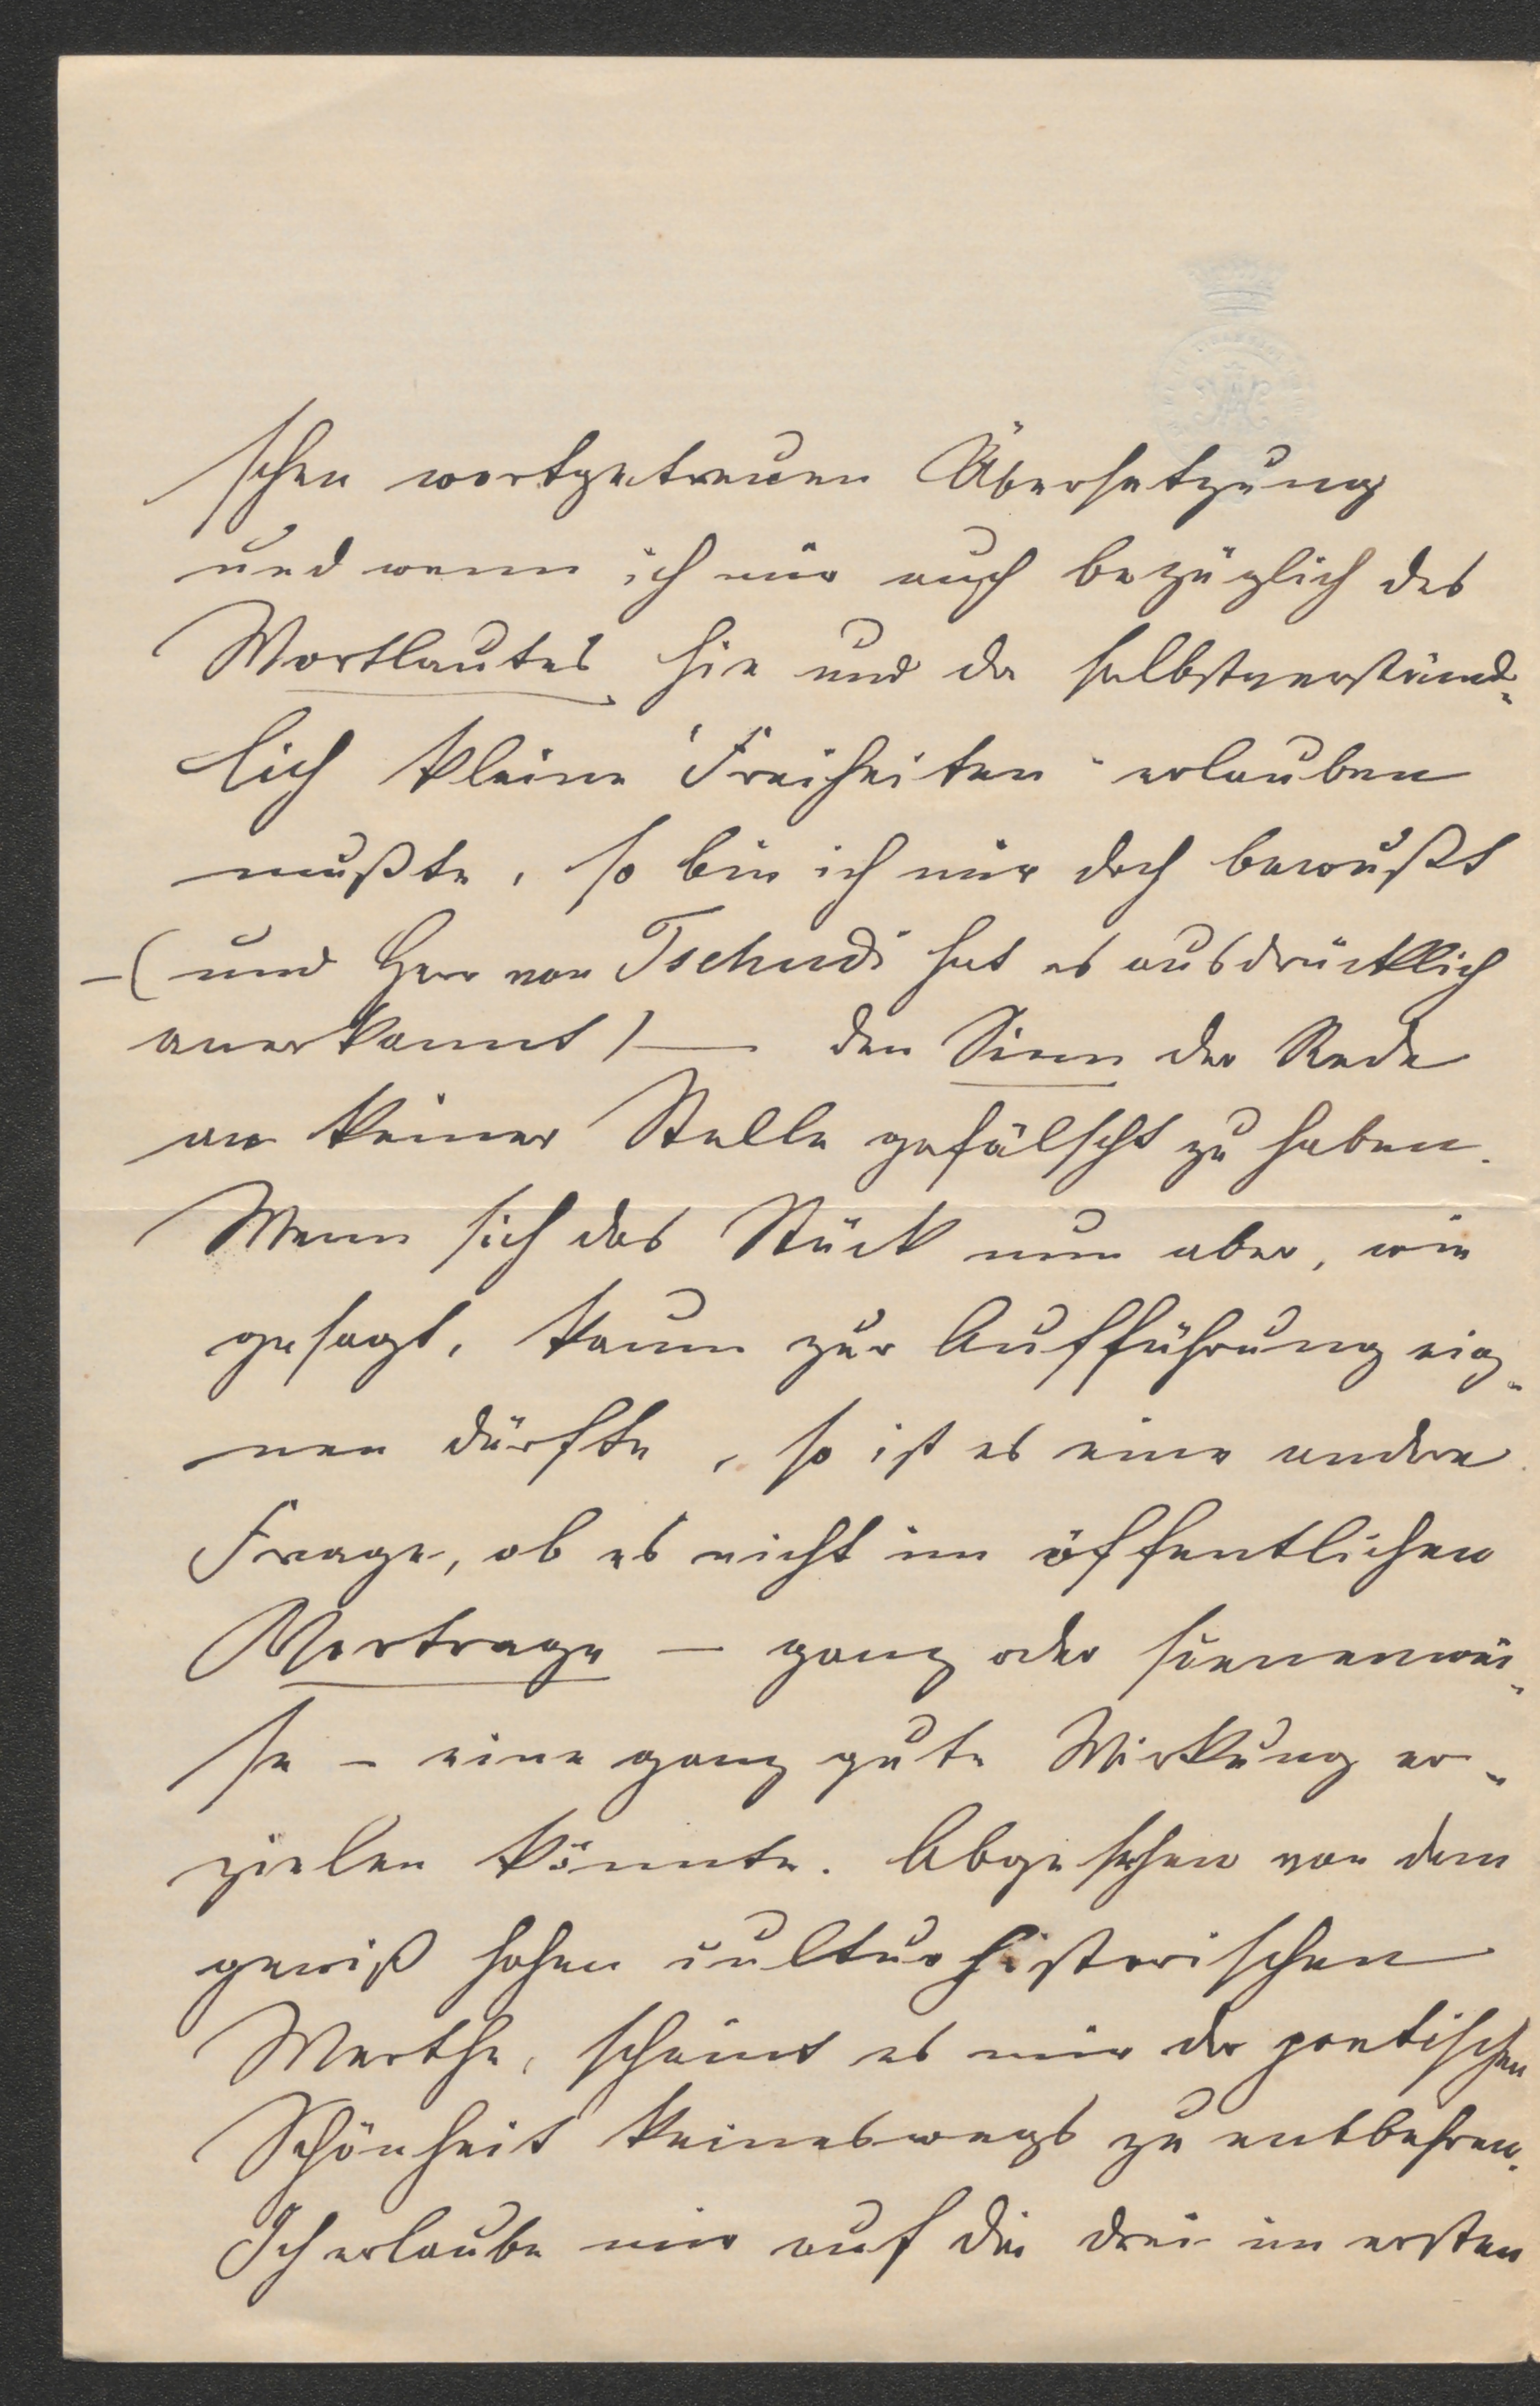 schen wortgetreuen Übersetzung
und wenn ich mir auch bezüglich des
Wortlautes hie und da selbstverständ-
lich kleine Freiheiten erlauben
mußte, so bin ich mir doch bewußt
–(und Herr von Tschudi hat es ausdrücklich
anerkannt)– den Sinn der Rede
an keiner Stelle gefälscht zu haben.
Wenn sich das Stück nun aber, wie
gesagt, kaum zur Aufführung eig-
nen dürfte, so ist es eine andere
Frage, ob es nicht im öffentlichen
Vortrage – ganz oder scenenwei-
se – eine ganz gute Wirkung er-
zielen könnte. Abgesehen von dem
gewiß hohen culturhistorischen
Werthe, scheint es mir der poetischen
Schönheit keineswegs zu entbehren.
Ich erlaube mir auf die drei im ersten